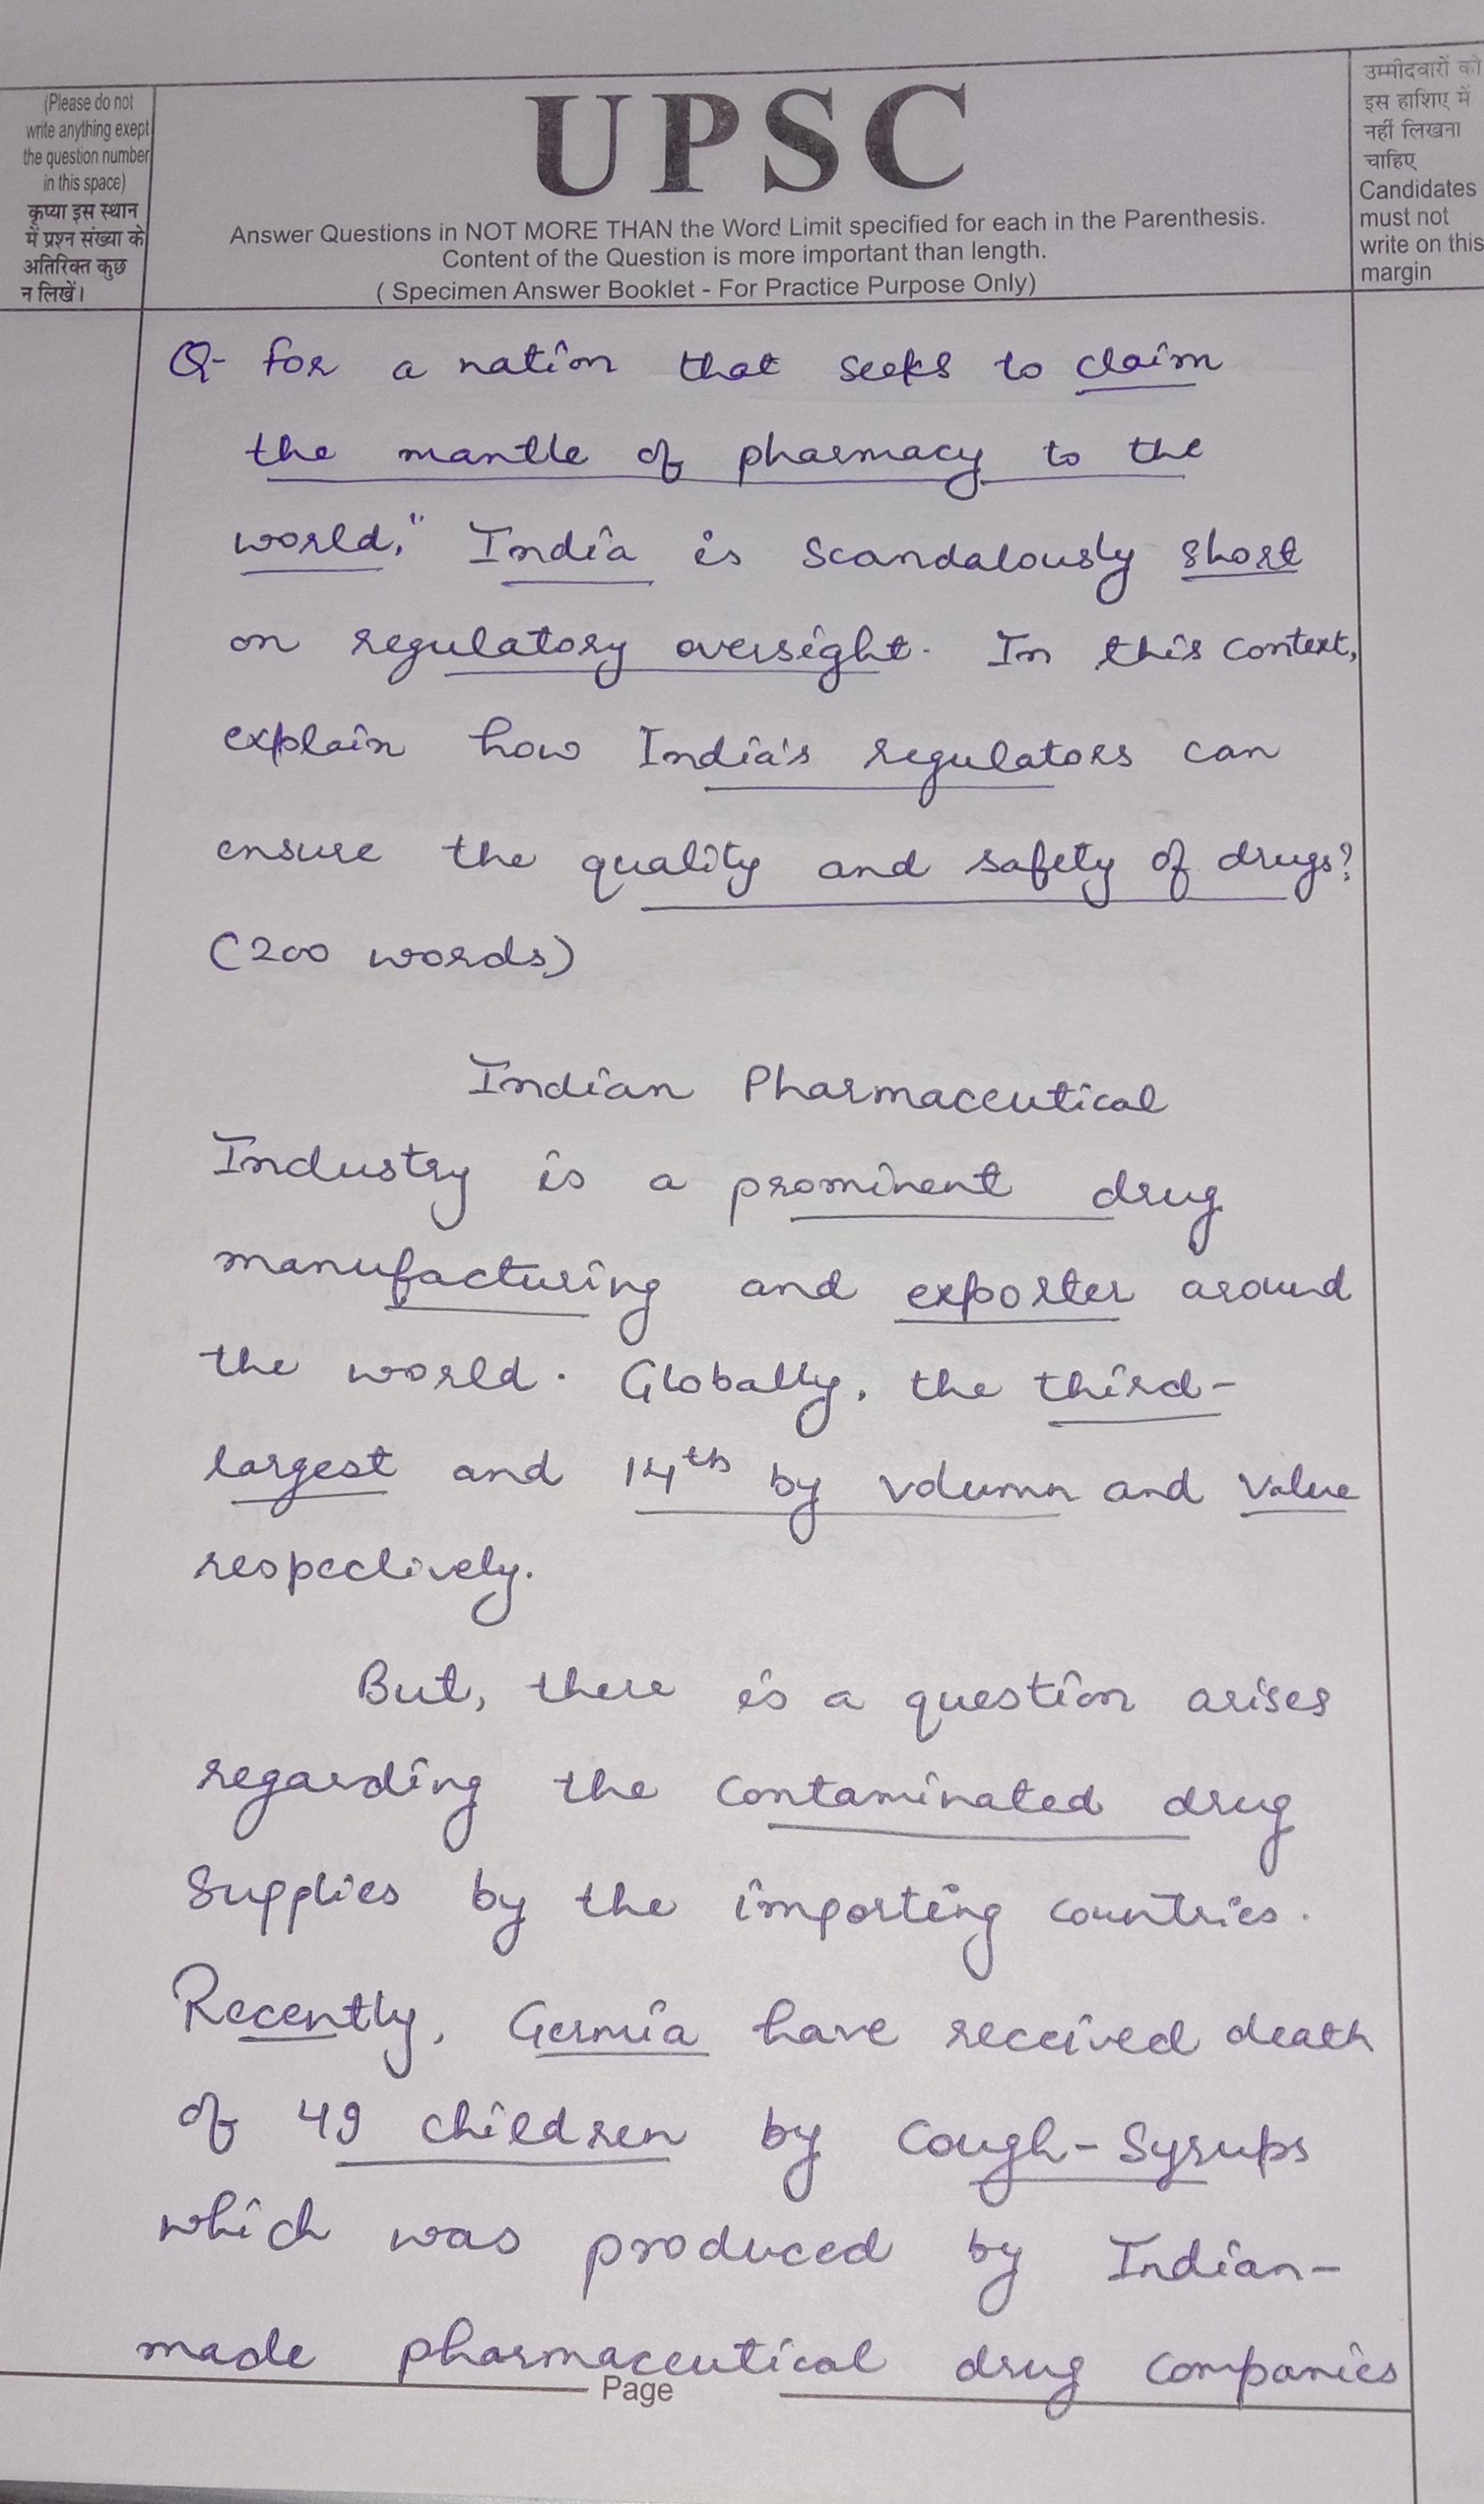 (Please do not
write anything exept
the question number
in this space)
कृप्या इस स्थान
में प्रश्न संख्या के
अतिरिक्त कुछ
न लिखें।
UPSC
Answer Questions in NOT MORE THAN the Word Limit specified for each in the Parenthesis.
Content of the Question is more important than length.
( Specimen Answer Booklet - For Practice Purpose Only)
उम्मीदवारों को
इस हाशिए में
नहीं लिखना
चाहिए
Candidates
must not
write on this
margin
Q- For a nation that seeks to claim
the mantle of pharmacy to the
world," India is scandalously short
on regulatory oversight. In this context,
explain how India's regulators can
ensure the quality and safety of drugs?
(200 words)
Indian Pharmaceutical
Industry is a prominent drug
manufacturing and exporter around
the world. Globally, the third-
largest and 14th by volumn and value
respectively.
But, there is a question arises
regarding the contaminated drug
supplies by the importing countries.
Recently, Germia have received death
of 49 children by Cough-Syrups
which was produced by Indian-
made pharmaceutical drug companies
Page